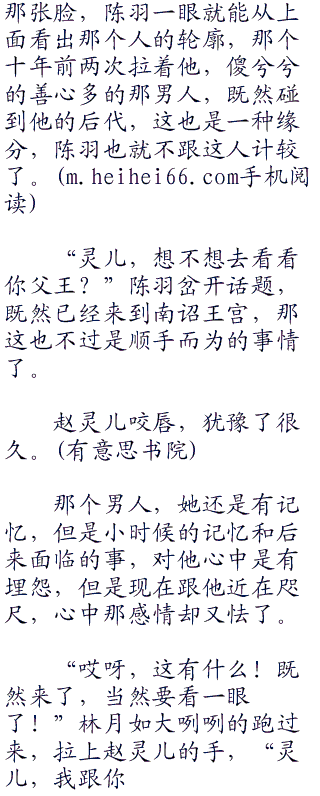 那张脸，陈羽一眼就能从上
面看出那个人的轮廓，那个
十年前两次拉着他，傻兮兮
的善心多的那男人，既然碰
到他的后代，这也是一种缘
分，陈羽也就不跟这人计较
了。(m.heihei66.com手机阅
读)
“灵儿，想不想去看看
你父王？”陈羽岔开话题，
既然已经来到南诏王宫，那
这也不过是顺手而为的事情
了。
赵灵儿咬唇，犹豫了很
久。(有意思书院)
那个男人，她还是有记
忆，但是小时候的记忆和后
来面临的事，对他心中是有
埋怨，但是现在跟他近在咫
尺，心中那感情却又怯了。
“哎呀，这有什么！既
然来了，当然要看一眼
了！”林月如大咧咧的跑过
来，拉上赵灵儿的手，“灵
儿，我跟你